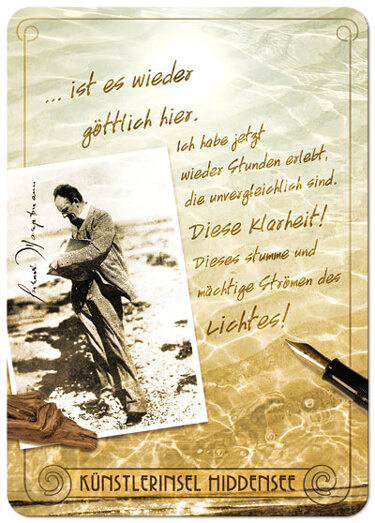 ... ist es wieder
göttlich hier.
Ich habe jetzt
wieder Stunden erlebt,
die unvergleichlich sind.
Diese Klarheit!
Dieses stumme und
mächtige Strömen des
Lichtes!
KÜNSTLERINSEL HIDDENSEE